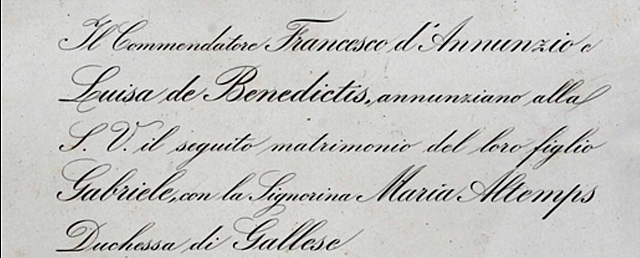 Il Commendatore Francesco d'Annunzio e
Luisa de Benedictis, annunziano alla
S. V. il seguito matrimonio del loro figlio
Gabriele, con la Signorina Maria Altemps
Duchessa di Gallese